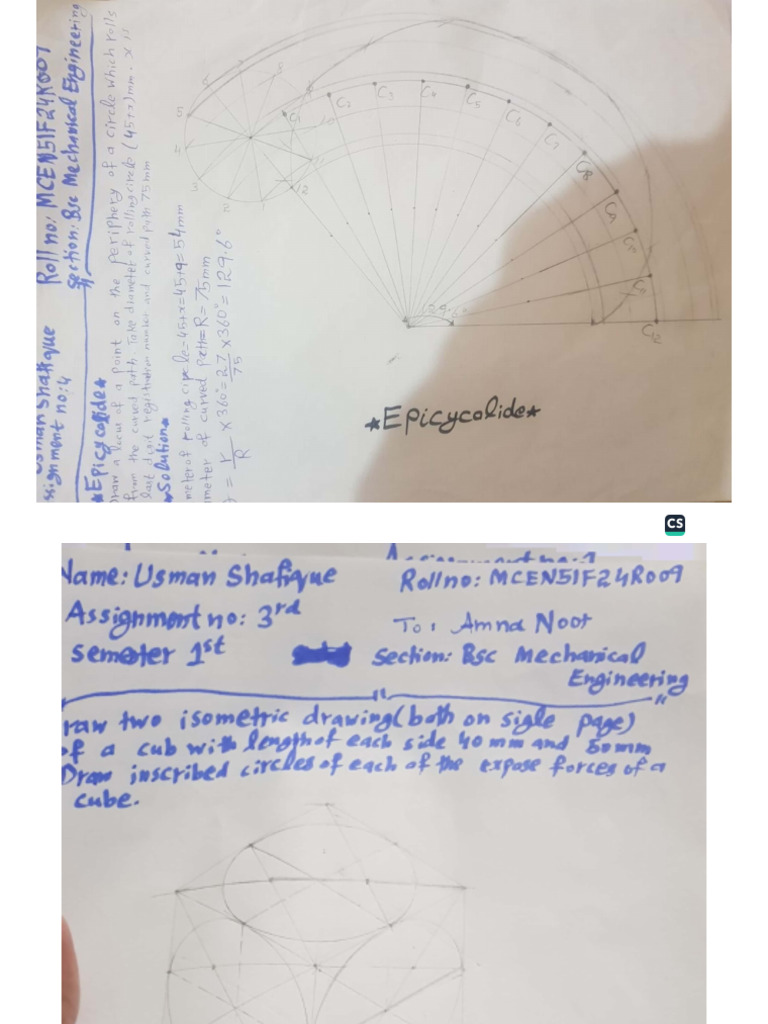 Usman Shafique Roll no: MCEN51F24R009
ssignment no:4 Section: Bsc Mechanical Engineering
*Epicycolide*
Draw a locus of a point on the periphery of a circle which rolls
from the curved path. Take diameter of rolling circle (45+x)mm. x is
last digit registration number and curved path 75mm
*Solution*
meter of rolling circle=45+x=45+9=54mm
meter of curved path=R=75mm
= r/R ×360°=27/75×360°=129.6°
1
2
3
4
5
6
7
8
12
C1
C2
C3
C4
C5
C6
C7
C8
C9
C10
C11
C12
129.6°
*Epicycolide*
CS
Name: Usman Shafique Roll no: MCEN51F24R009
Assignment no: 3rd To, Amna Noor
semester 1st Section: Bsc Mechanical
Engineering
raw two isometric drawing(both on sigle page)
of a cub with length of each side 40 mm and 50mm
Draw inscribed circles of each of the expose forces of a
cube.